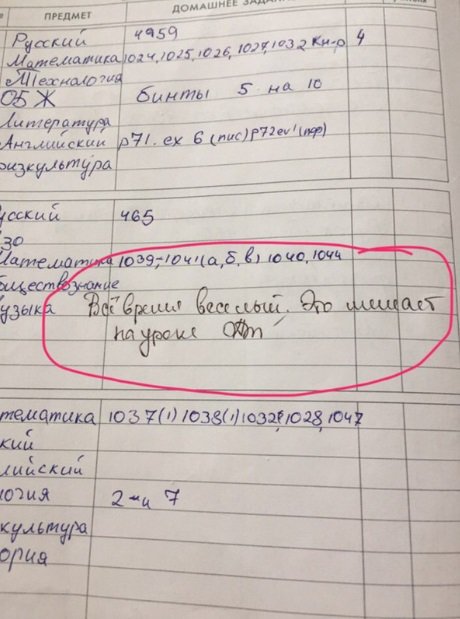 ПРЕДМЕТ ДОМАШНЕЕ ЗАДА
Русский 4959
Математика 1024, 1025, 1026, 1027, 1032 Кн-р 4
Технология
ОБЖ бинты 5 на 10
Литература
Английский р71. ex 6 (пис) р72 ex 1 (пер)
физкультура
усский 465
зо
Математика 1039, 1041 (а, б, в) 1040, 1044
бществознание
узыка Всё время веселый. Это мешает
на уроке
тематика 1037(1) 1038(1) 1032, 1028, 1047
ский
лийский
логия 2 7
культура
ория